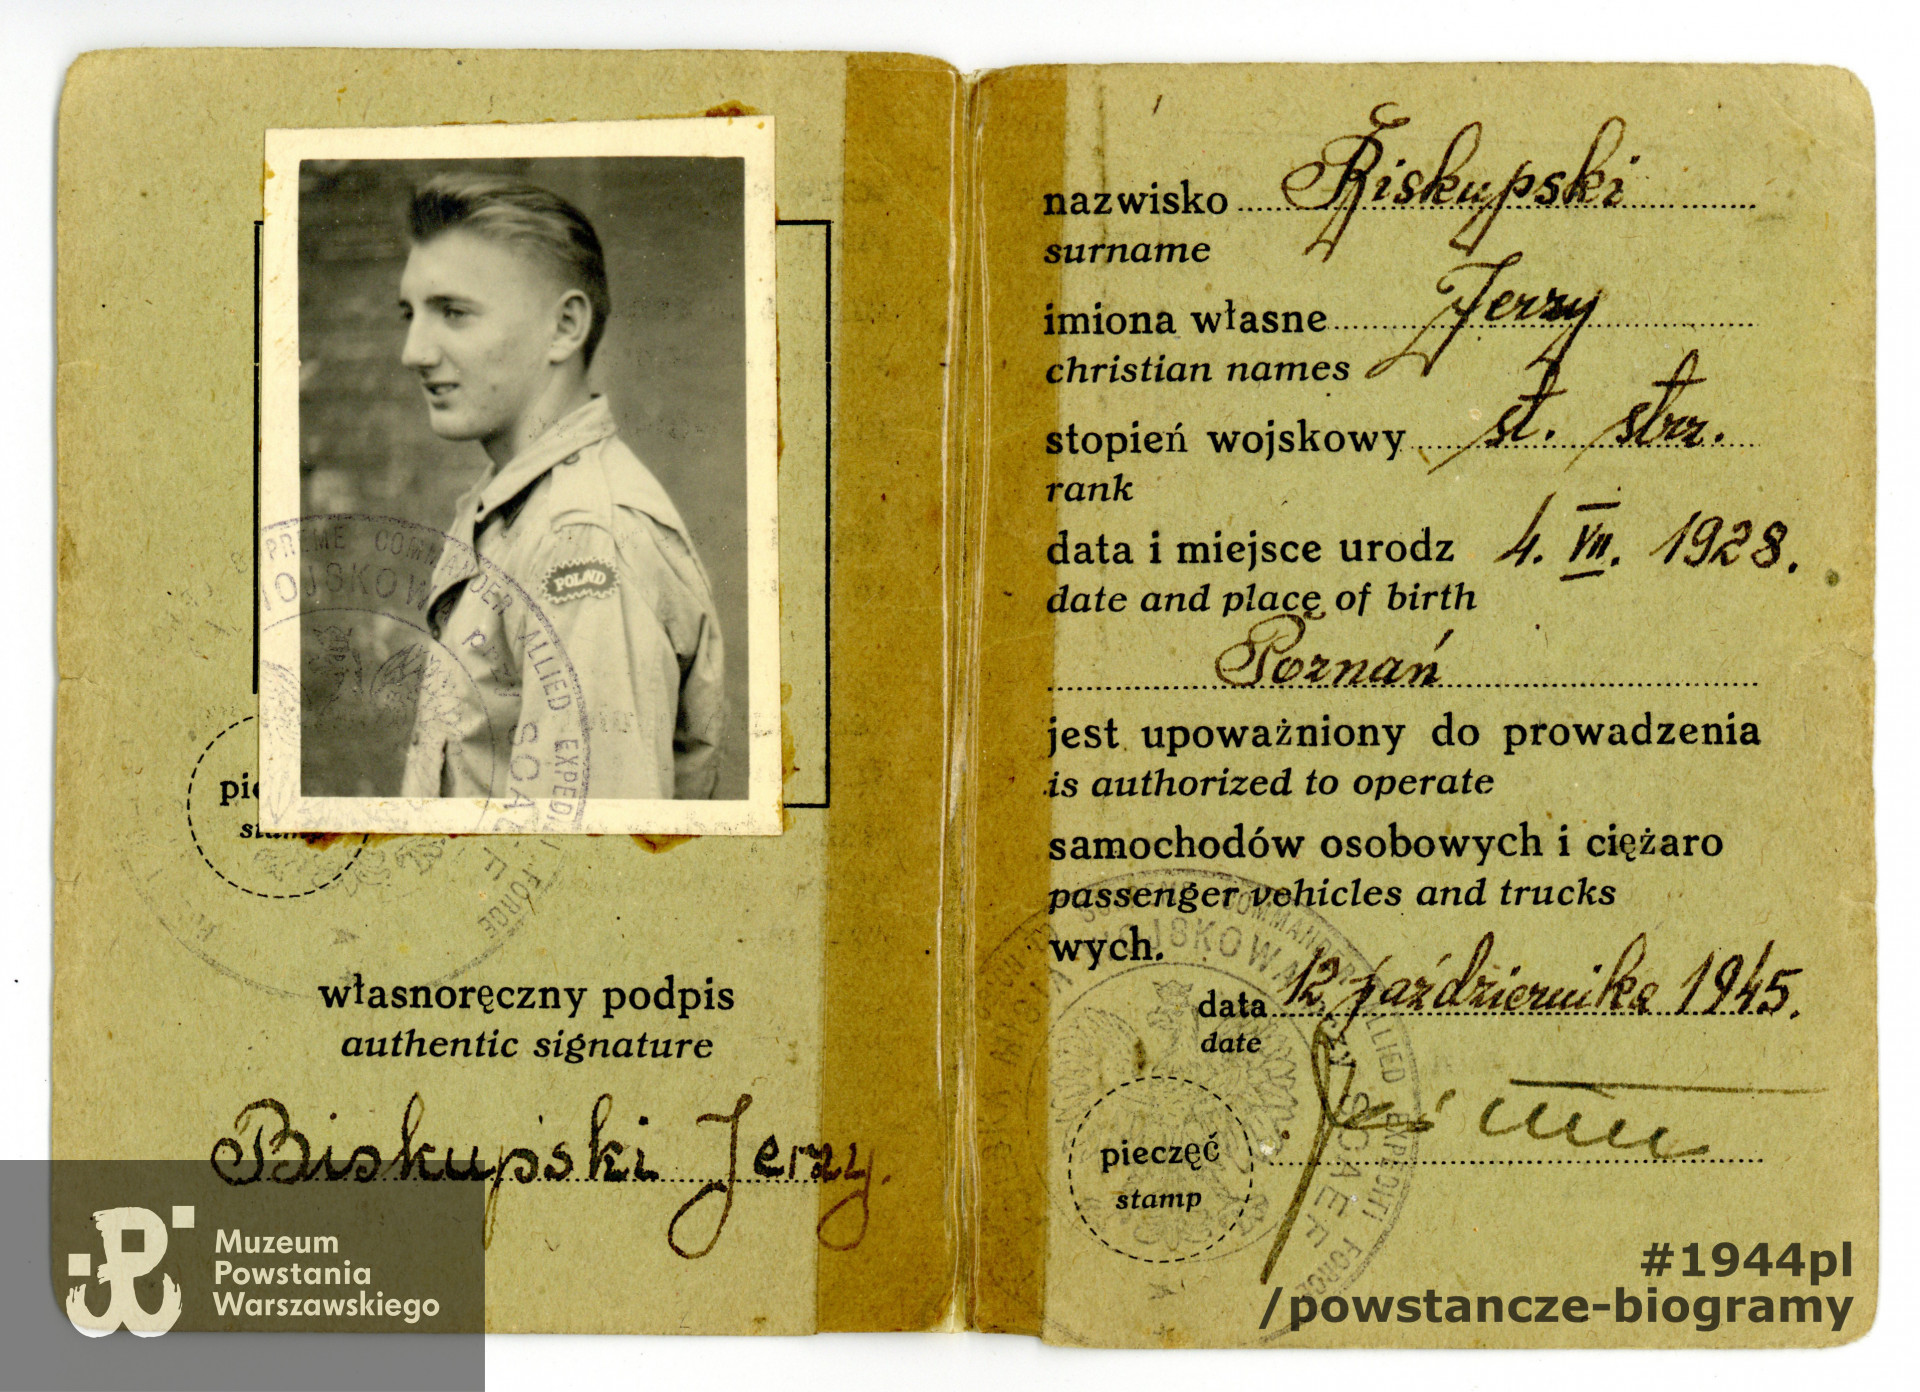 POLAND
SUPREME COMMANDER ALLIED EXPEDIT. FORCE
WOJSKOWA PRZY SCAEF
pie
stamp
własnoręczny podpis
authentic signature
Biskupski Jerzy.
nazwisko Biskupski
surname
imiona własne Jerzy
christian names
stopień wojskowy st. strz.
rank
data i miejsce urodz 4. VII. 1928.
date and place of birth
Poznań
jest upoważniony do prowadzenia
is authorized to operate
samochodów osobowych i ciężaro
passenger vehicles and trucks
wych.
data 12 października 1945.
date
SUPREME COMMANDER ALLIED EXPEDIT. FORCE
MISJA WOJSKOWA PRZY SCAEF
pieczęć
stamp
Muzeum
Powstania
Warszawskiego
#1944pl
/powstancze-biogramy